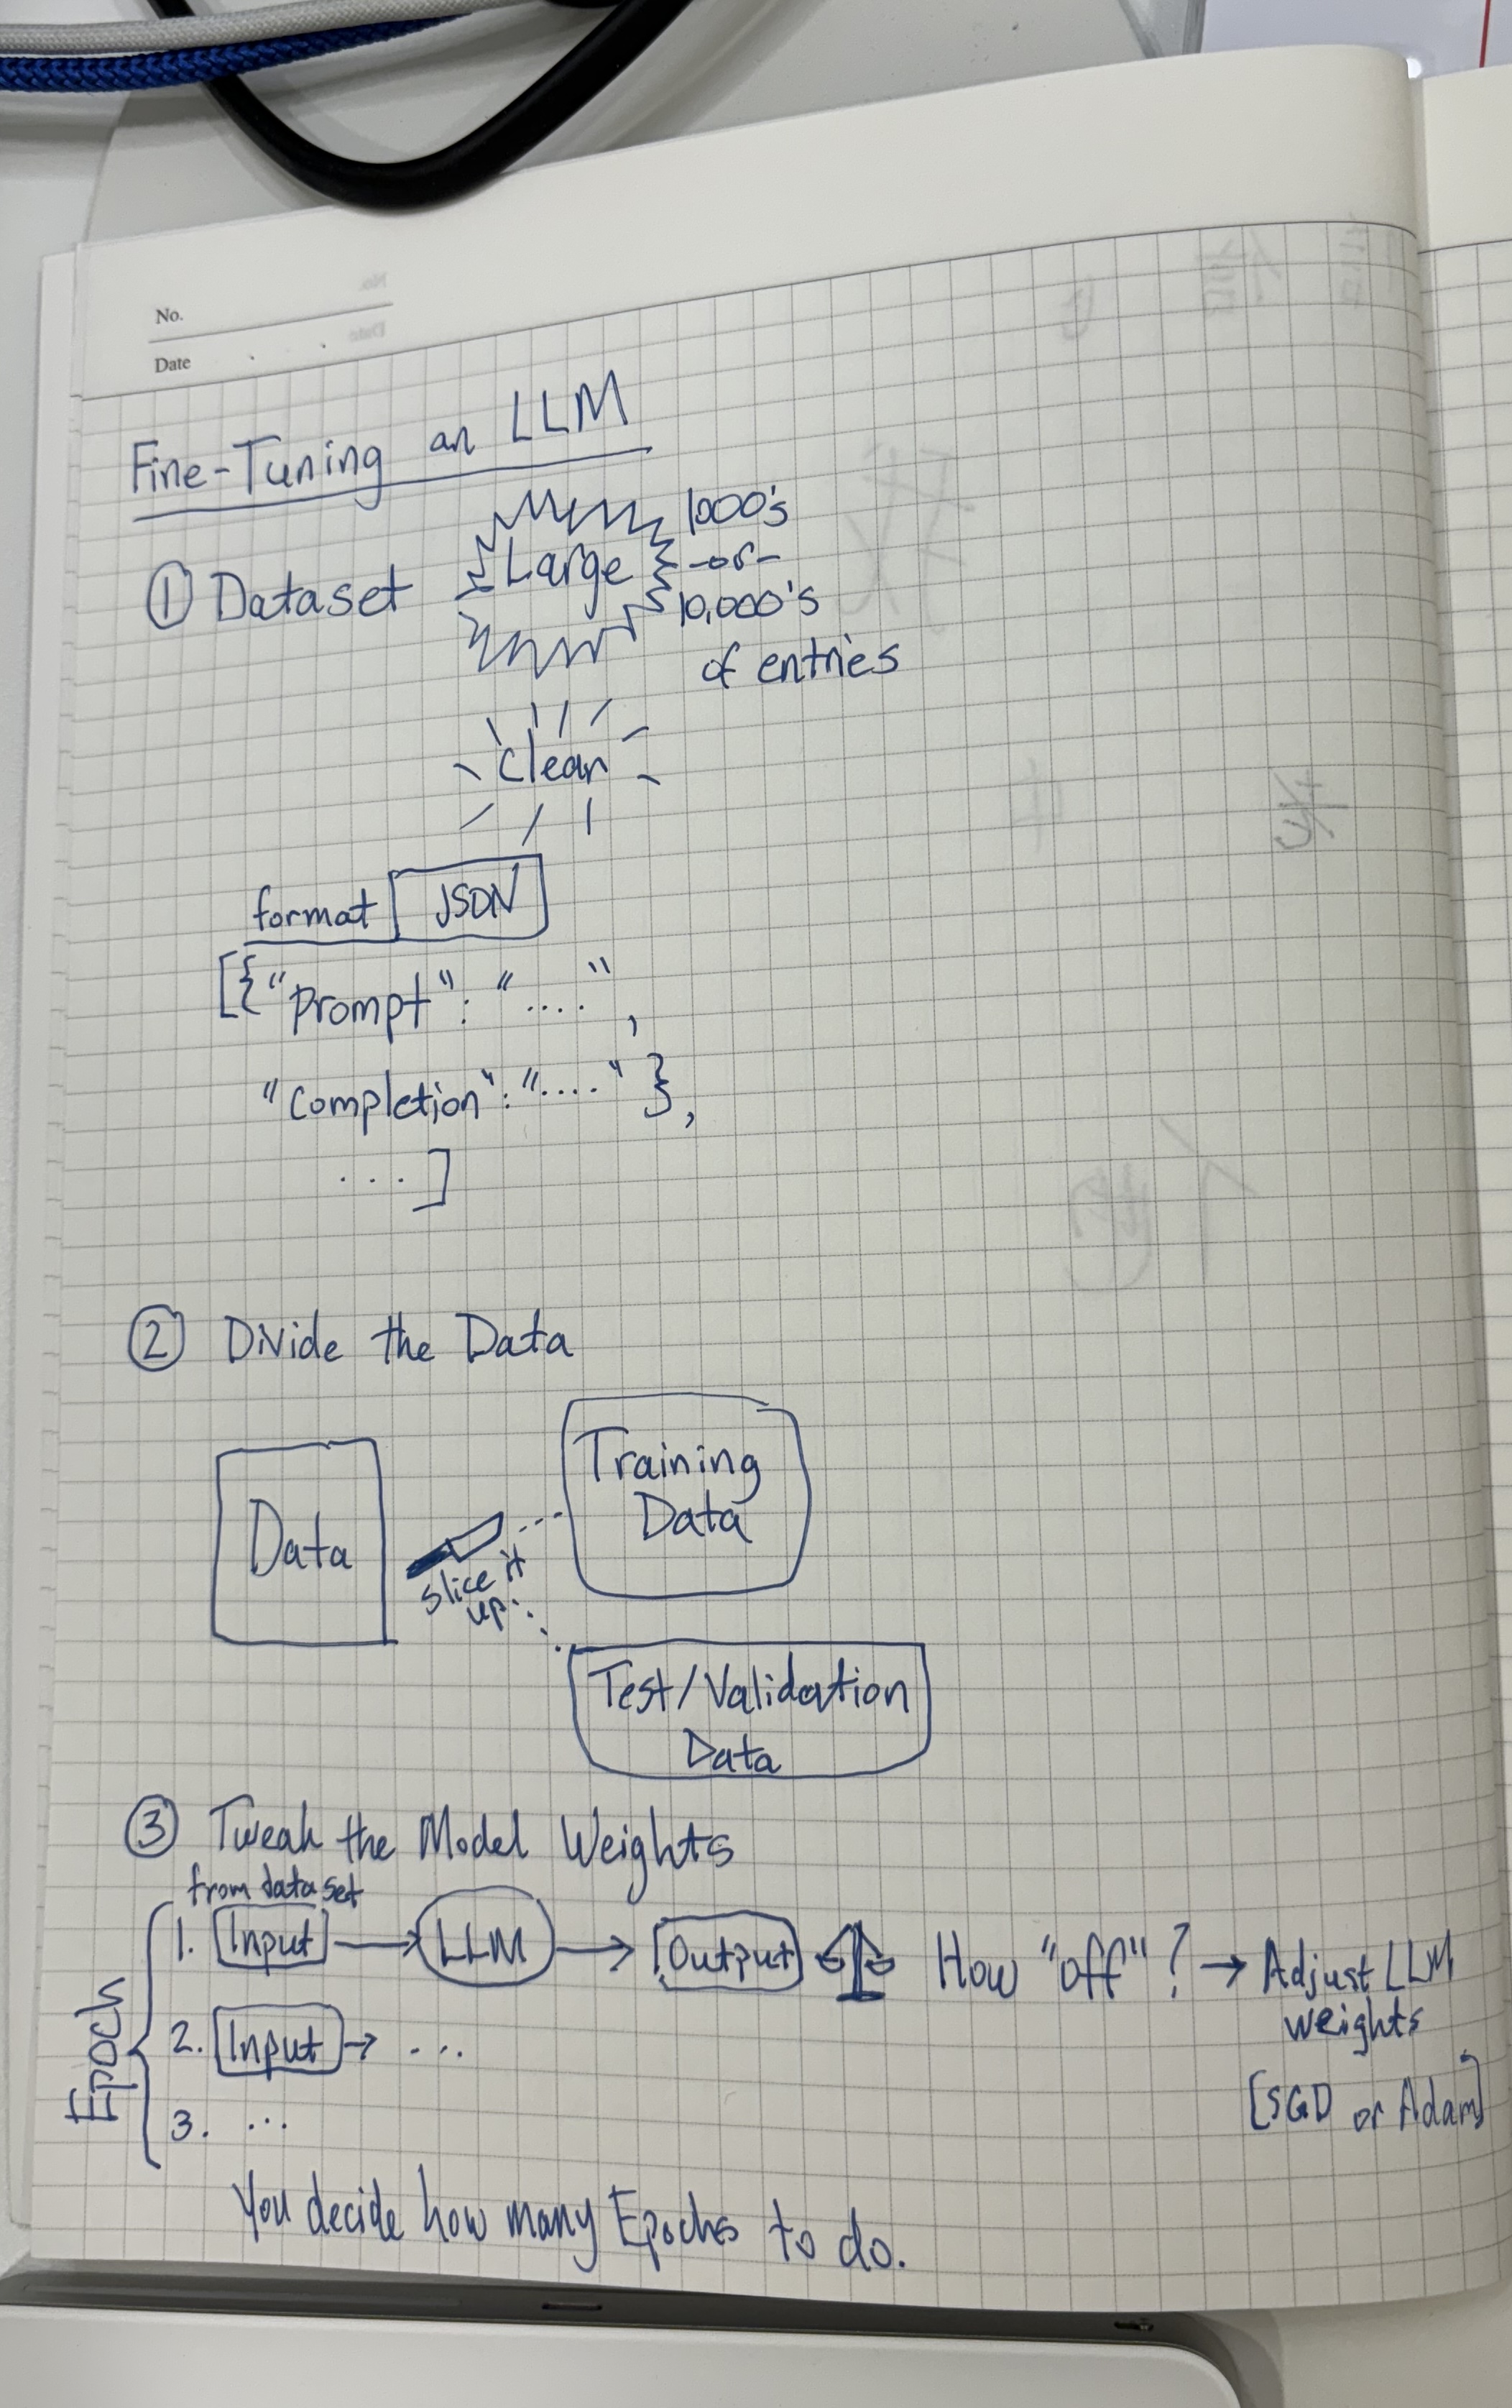 No.
Date
Fine-Tuning an LLM
① Dataset Large 1000's
-or-
10,000's
of entries
clean
format JSON
[{"prompt": "....",
"completion": "...." },
...]
② Divide the Data
Data
slice it
up
Training
Data
Test/Validation
Data
③ Tweak the Model Weights
from dataset
Epoch
1. Input → LLM → Output How "off"? → Adjust LLM
weights
2. Input → ...
[SGD or Adam]
3. ...
You decide how many Epochs to do.